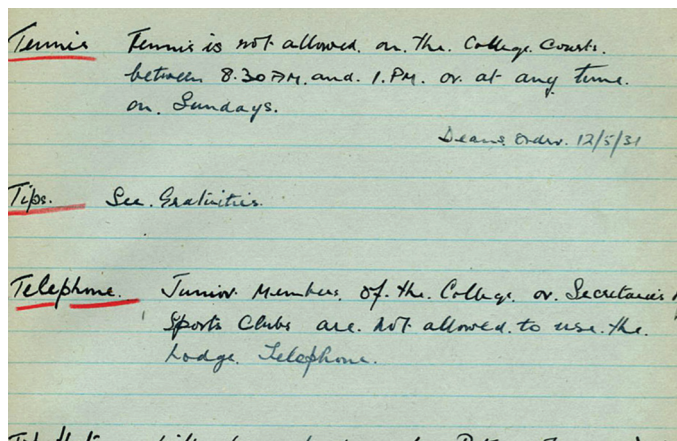 Tennis Tennis is not allowed on the College Courts.
between 8.30 AM. and 1. PM. or at any time.
on Sundays.
Deans Order. 12/5/31
Tips. See. Gratuities.
Telephone. Junior Members. of the College. or Secretaries
Sports Clubs are not allowed to use the.
Lodge Telephone.